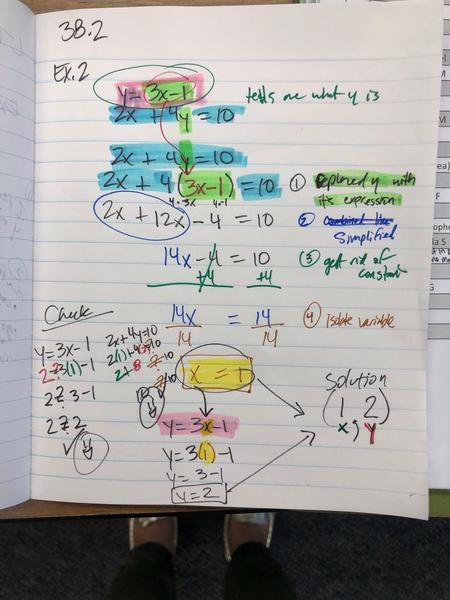 3B.2
Ex. 2
y = 3x-1
tells me what y is
2x + 4y = 10
2x + 4y = 10
2x + 4(3x-1) = 10
① Replaced y with its expression
4·3x 4·-1
2x + 12x - 4 = 10
② combined like
Simplified
14x - 4 = 10
+4 +4
③ get rid of constant
14x = 14
14 14
④ isolate variable
Check
y = 3x - 1
2 ≟ 3(1) - 1
2 ≟ 3 - 1
2 ≟ 2
✓
2x + 4y = 10
2(1) +
2 + 8 ≟ 10
x = 1
y = 3x - 1
y = 3(1) - 1
y = 3 - 1
y = 2
Solution
(1, 2)
x y